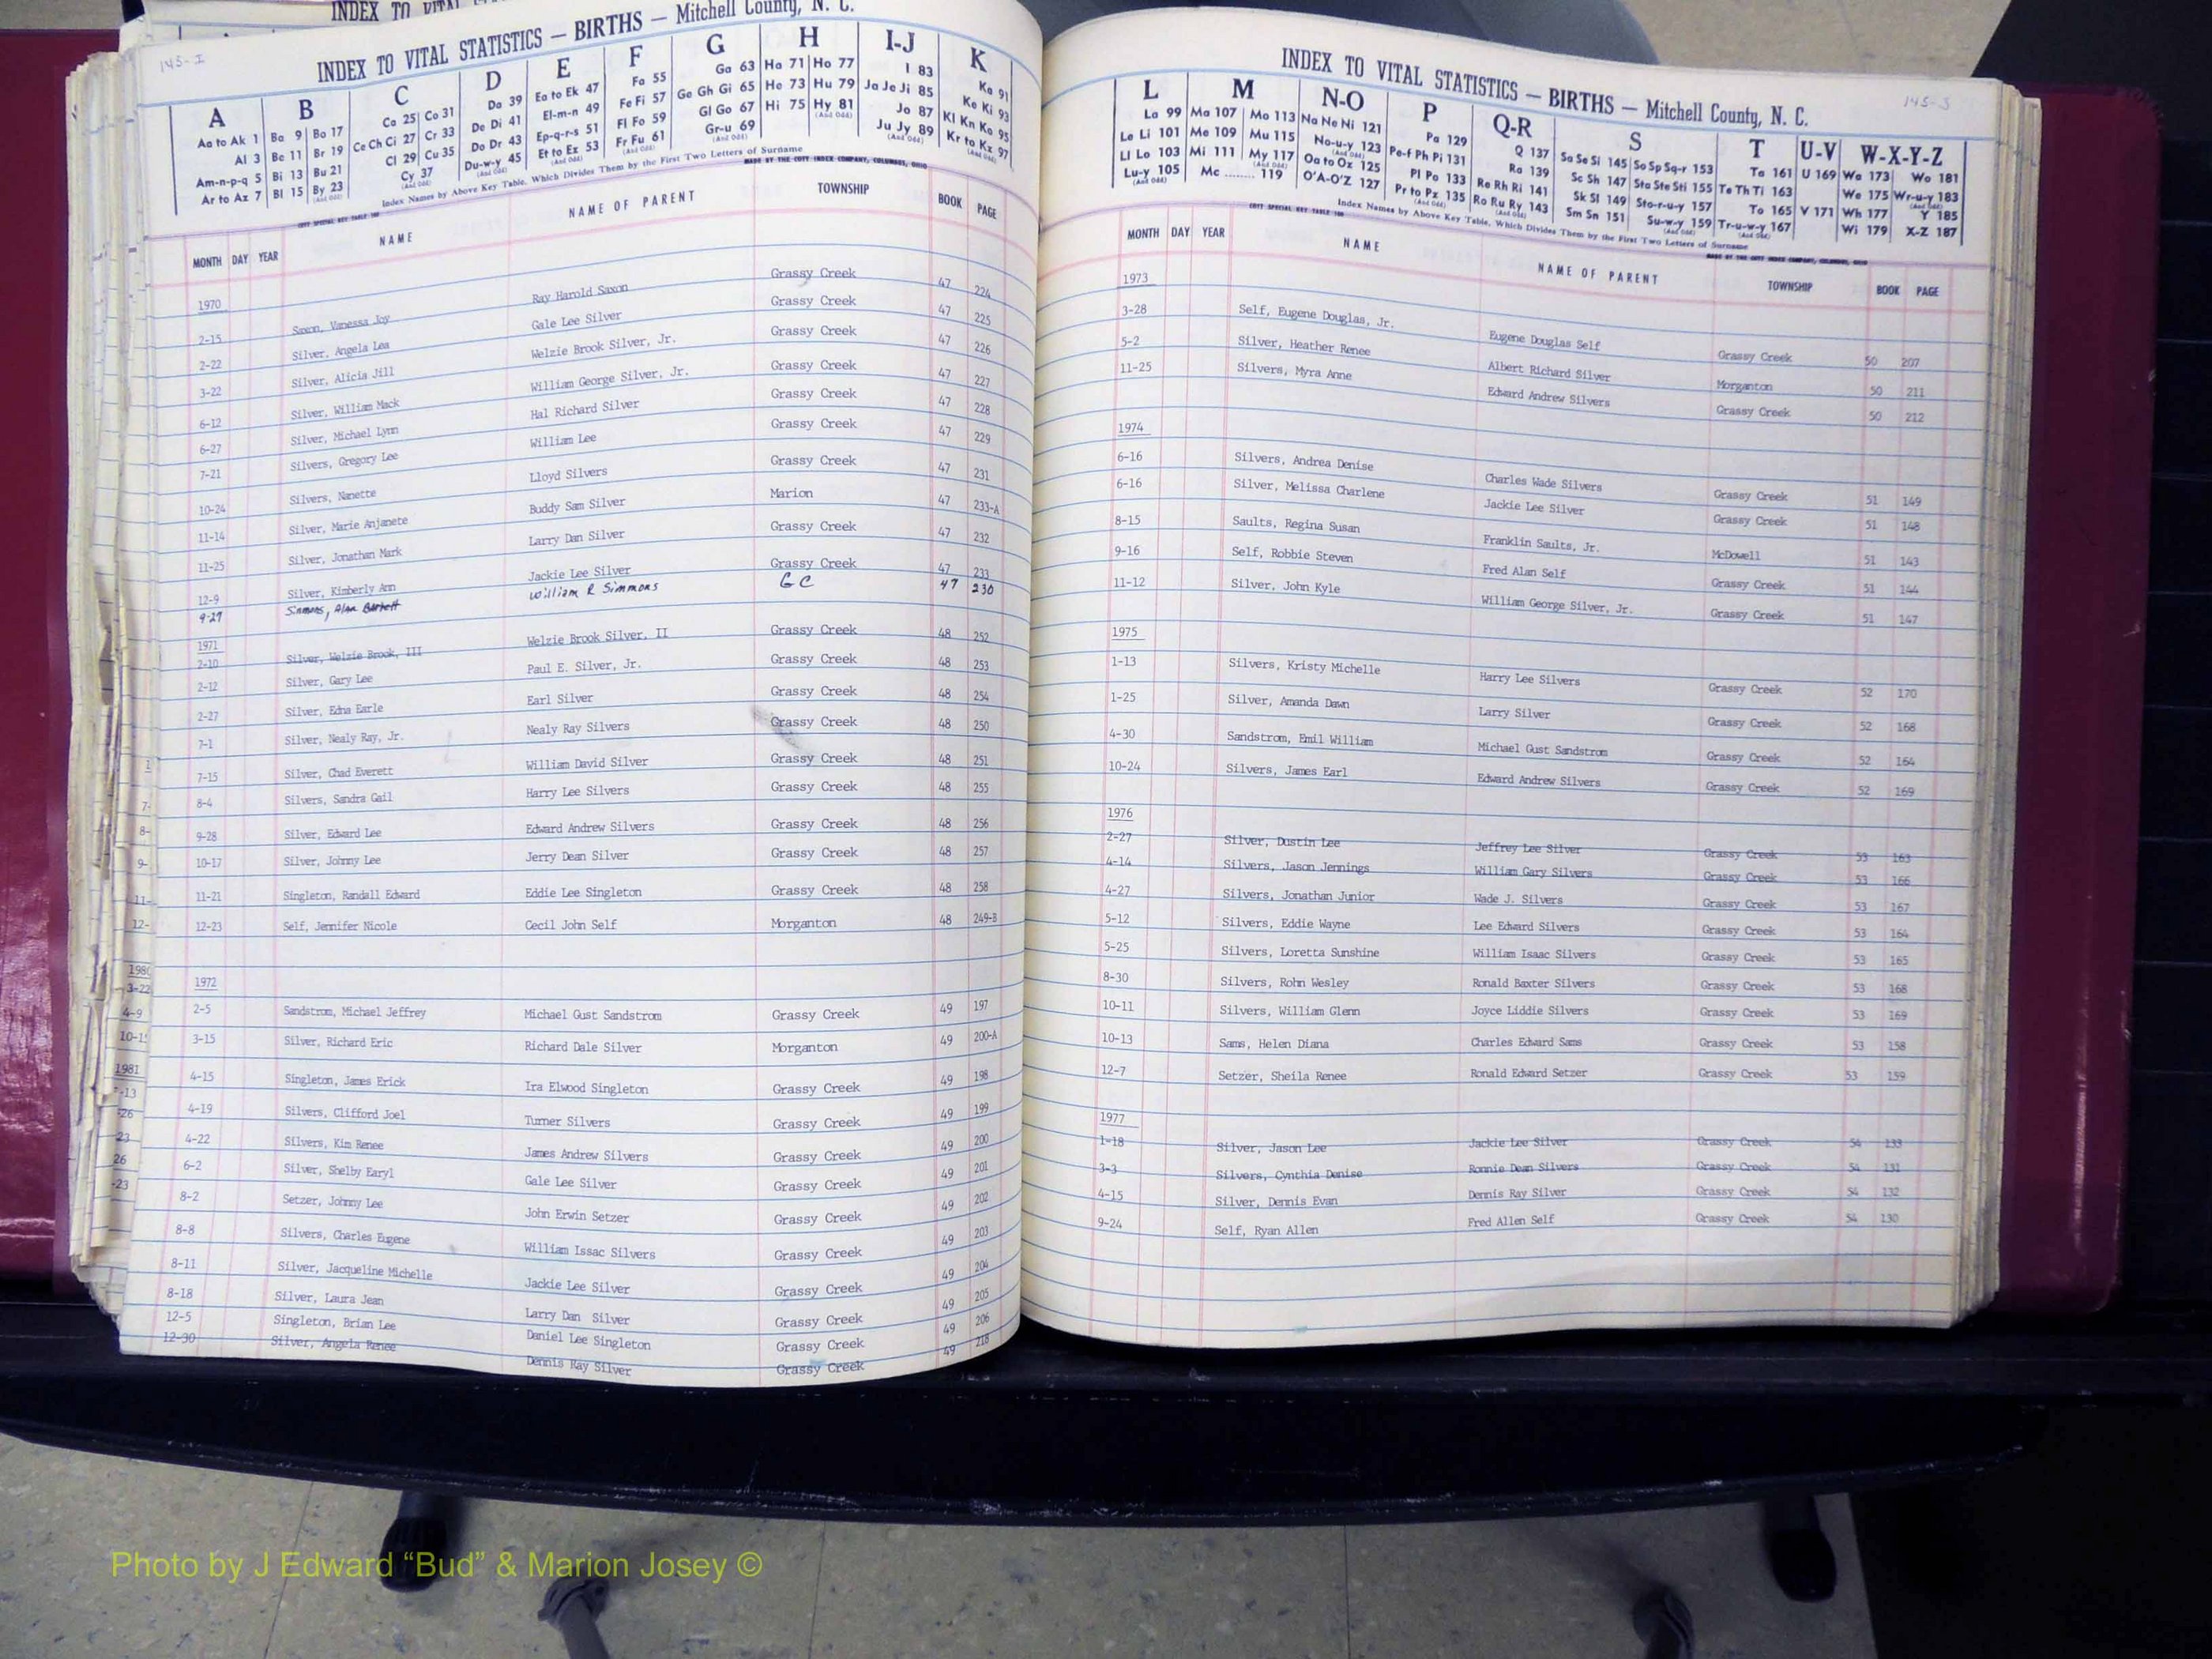 INDEX TO VITAL
145-I
INDEX TO VITAL STATISTICS — BIRTHS — Mitchell County, N. C.
A B C D E F G H I-J K
Aa to Ak 1 Ba 9 Bo 17 Ca 25 Co 31 Da 39 Ea to Ek 47 Fa 55 Ga 63 Ha 71 Ho 77 I 83 Ka 91
Al 3 Be 11 Br 19 Ce Ch Ci 27 Cr 33 De Di 41 El-m-n 49 Fe Fi 57 Ge Gh Gi 65 He 73 Hu 79 Ja Je Ji 85 Ke Ki 93
Am-n-p-q 5 Bi 13 Bu 21 Cl 29 Cu 35 Do Dr 43 Ep-q-r-s 51 Fl Fo 59 Gl Go 67 Hi 75 Hy 81 (And Odd) Jo 87 Kl Kn Ko 95
Ar to Az 7 Bl 15 By 23 (And Odd) Cy 37 (And Odd) Du-w-y 45 (And Odd) Et to Ez 53 (And Odd) Fr Fu 61 (And Odd) Gr-u 69 (And Odd) Ju Jy 89 (And Odd) Kr to Kz 97 (And Odd)
Index Names by Above Key Table, Which Divides Them by the First Two Letters of Surname
MADE BY THE COTT INDEX COMPANY, COLUMBUS, OHIO
COTT SPECIAL KEY TABLE 100
MONTH DAY YEAR NAME NAME OF PARENT TOWNSHIP BOOK PAGE
1970
2-15 Saxon, Vanessa Joy Ray Harold Saxon Grassy Creek 47 224
2-22 Silver, Angela Lea Gale Lee Silver Grassy Creek 47 225
3-22 Silver, Alicia Jill Welzie Brook Silver, Jr. Grassy Creek 47 226
6-12 Silver, William Mack William George Silver, Jr. Grassy Creek 47 227
6-27 Silver, Michael Lynn Hal Richard Silver Grassy Creek 47 228
7-21 Silvers, Gregory Lee William Lee Grassy Creek 47 229
10-24 Silvers, Nanette Lloyd Silvers Grassy Creek 47 231
11-14 Silver, Marie Anjanete Buddy Sam Silver Marion 47 233-A
11-25 Silver, Jonathan Mark Larry Dan Silver Grassy Creek 47 232
12-9 Silver, Kimberly Ann Jackie Lee Silver Grassy Creek 47 233
9-27 Simmons, Alan William R Simmons G C 47 230
1971
2-10 Silver, Welzie Brook, III Welzie Brook Silver, II Grassy Creek 48 252
2-12 Silver, Gary Lee Paul E. Silver, Jr. Grassy Creek 48 253
2-27 Silver, Edna Earle Earl Silver Grassy Creek 48 254
7-1 Silver, Nealy Ray, Jr. Nealy Ray Silvers Grassy Creek 48 250
7-15 Silver, Chad Everett William David Silver Grassy Creek 48 251
8-4 Silvers, Sandra Gail Harry Lee Silvers Grassy Creek 48 255
9-28 Silver, Edward Lee Edward Andrew Silvers Grassy Creek 48 256
10-17 Silver, Johnny Lee Jerry Dean Silver Grassy Creek 48 257
11-21 Singleton, Randall Edward Eddie Lee Singleton Grassy Creek 48 258
12-23 Self, Jennifer Nicole Cecil John Self Morganton 48 249-B
1972
2-5 Sandstrom, Michael Jeffrey Michael Gust Sandstrom Grassy Creek 49 197
3-15 Silver, Richard Eric Richard Dale Silver Morganton 49 200-A
4-15 Singleton, James Erick Ira Elwood Singleton Grassy Creek 49 198
4-19 Silvers, Clifford Joel Turner Silvers Grassy Creek 49 199
4-22 Silvers, Kim Renee James Andrew Silvers Grassy Creek 49 200
6-2 Silver, Shelby Earyl Gale Lee Silver Grassy Creek 49 201
8-2 Setzer, Johnny Lee John Erwin Setzer Grassy Creek 49 202
8-8 Silvers, Charles Eugene William Issac Silvers Grassy Creek 49 203
8-11 Silver, Jacqueline Michelle Jackie Lee Silver Grassy Creek 49 204
8-18 Silver, Laura Jean Larry Dan Silver Grassy Creek 49 205
12-5 Singleton, Brian Lee Daniel Lee Singleton Grassy Creek 49 206
12-30 Silver, Angela Renee Dennis Ray Silver Grassy Creek 49 218
1
7-
8-
9-
11-
12-
1980
3-22
4-9
10-1
1981
-13
-26
23
26
-23
145-J
INDEX TO VITAL STATISTICS — BIRTHS — Mitchell County, N. C.
L M N-O P Q-R S T U-V W-X-Y-Z
La 99 Ma 107 Mo 113 Na Ne Ni 121 Pa 129 Q 137 Sa Se Si 145 So Sp Sq-r 153 Ta 161 U 169 Wa 173 Wo 181
Le Li 101 Me 109 Mu 115 No-u-y 123 (And Odd) Pe-f Ph Pi 131 Ra 139 Sc Sh 147 Sta Ste Sti 155 Te Th Ti 163 We 175 Wr-u-y 183 (And Odd)
Ll Lo 103 Mi 111 My 117 (And Odd) Oa to Oz 125 Pl Po 133 Re Rh Ri 141 Sk Sl 149 Sto-r-u-y 157 To 165 V 171 Wh 177 Y 185
Lu-y 105 (And Odd) Mc ........ 119 O'A-O'Z 127 Pr to Pz 135 (And Odd) Ro Ru Ry 143 (And Odd) Sm Sn 151 Su-w-y 159 (And Odd) Tr-u-w-y 167 (And Odd) Wi 179 X-Z 187
Index Names by Above Key Table, Which Divides Them by the First Two Letters of Surname
COTT SPECIAL KEY TABLE 100
MADE BY THE COTT INDEX COMPANY, COLUMBUS, OHIO
MONTH DAY YEAR NAME NAME OF PARENT TOWNSHIP BOOK PAGE
1973
3-28 Self, Eugene Douglas, Jr. Eugene Douglas Self Grassy Creek 50 207
5-2 Silver, Heather Renee Albert Richard Silver Morganton 50 211
11-25 Silvers, Myra Anne Edward Andrew Silvers Grassy Creek 50 212
1974
6-16 Silvers, Andrea Denise Charles Wade Silvers Grassy Creek 51 149
6-16 Silver, Melissa Charlene Jackie Lee Silver Grassy Creek 51 148
8-15 Saults, Regina Susan Franklin Saults, Jr. McDowell 51 143
9-16 Self, Robbie Steven Fred Alan Self Grassy Creek 51 144
11-12 Silver, John Kyle William George Silver, Jr. Grassy Creek 51 147
1975
1-13 Silvers, Kristy Michelle Harry Lee Silvers Grassy Creek 52 170
1-25 Silver, Amanda Dawn Larry Silver Grassy Creek 52 168
4-30 Sandstrom, Emil William Michael Gust Sandstrom Grassy Creek 52 164
10-24 Silvers, James Earl Edward Andrew Silvers Grassy Creek 52 169
1976
2-27 Silver, Dustin Lee Jeffrey Lee Silver Grassy Creek 53 163
4-14 Silvers, Jason Jennings William Gary Silvers Grassy Creek 53 166
4-27 Silvers, Jonathan Junior Wade J. Silvers Grassy Creek 53 167
5-12 Silvers, Eddie Wayne Lee Edward Silvers Grassy Creek 53 164
5-25 Silvers, Loretta Sunshine William Isaac Silvers Grassy Creek 53 165
8-30 Silvers, Rohn Wesley Ronald Baxter Silvers Grassy Creek 53 168
10-11 Silvers, William Glenn Joyce Liddie Silvers Grassy Creek 53 169
10-13 Sams, Helen Diana Charles Edward Sams Grassy Creek 53 158
12-7 Setzer, Sheila Renee Ronald Edward Setzer Grassy Creek 53 159
1977
1-18 Silver, Jason Lee Jackie Lee Silver Grassy Creek 54 133
3-3 Silvers, Cynthia Denise Ronnie Dean Silvers Grassy Creek 54 131
4-15 Silver, Dennis Evan Dennis Ray Silver Grassy Creek 54 132
9-24 Self, Ryan Allen Fred Allen Self Grassy Creek 54 130
Photo by J Edward “Bud” & Marion Josey ©